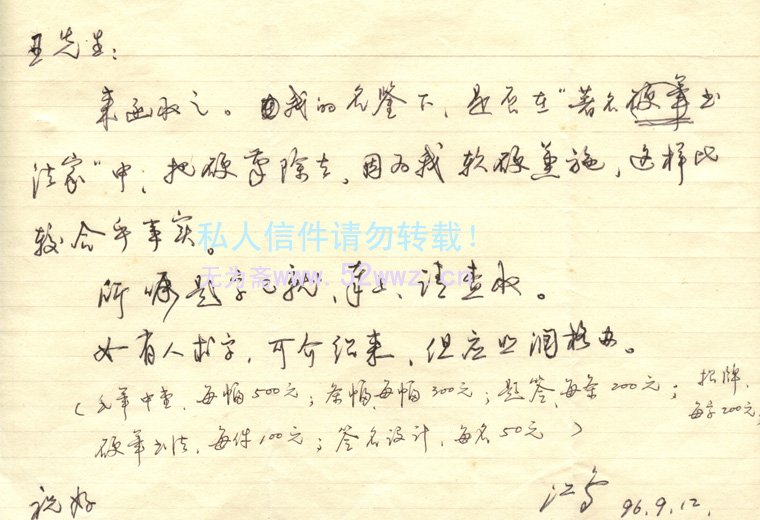 王先生：
来函收之。我的名鉴下，是否在“著名硬笔书
法家”中，把硬笔除去，因为我软硬兼施，这样比
较合乎事实。
私人信件请勿转载！
无为斋www.52wwz.cn
所嘱题字已就，奉上，请查收。
如有人求字，可介绍来，但应照润格办。
（毛笔中堂，每幅500元；条幅，每幅300元；题签，每条200元；招牌，
每字200元；
硬笔书法，每件100元；签名设计，每名50元）
祝好
96.9.12.